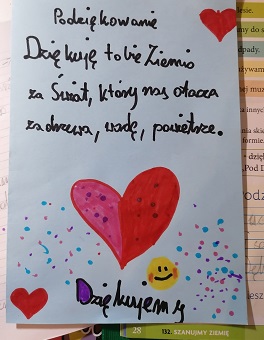 Podziękowanie
Dziękuję tobie Ziemio
za Świat, który nas otacza
za drzewa, wodę, powietrze.
Dziękujemy
28 132. SZANUJMY ZIEMIĘ